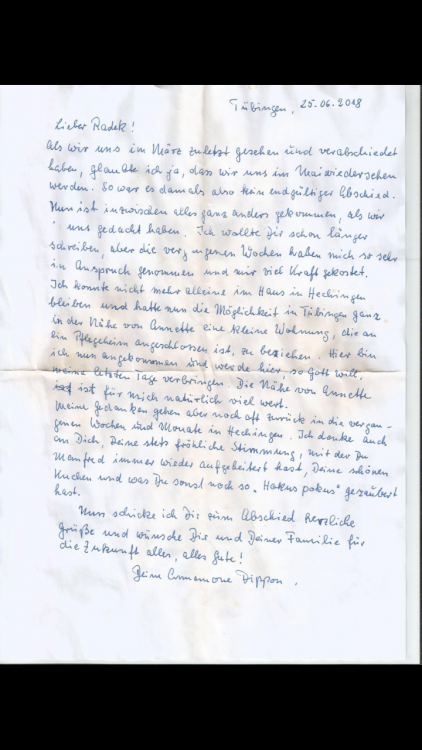 Tübingen, 25.06.2018
Lieber Radek!
Als wir uns im März zuletzt gesehen und verabschiedet
haben, glaubte ich ja, dass wir uns im Mai wiedersehen
werden. So war es damals also kein endgültiger Abschied.
Nun ist inzwischen alles ganz anders gekommen, als wir
uns gedacht haben. Ich wollte Dir schon länger
schreiben, aber die vergangenen Wochen haben mich so sehr
in Anspruch genommen und mir viel Kraft gekostet.
Ich konnte nicht mehr alleine im Haus in Hechingen
bleiben und hatte nun die Möglichkeit in Tübingen ganz
in der Nähe von Annette eine kleine Wohnung, die an
ein Pflegeheim angeschlossen ist, zu beziehen. Hier bin
ich nun angekommen und werde hier, so Gott will,
meine letzten Tage verbringen. Die Nähe von Annette
ist ist für mich natürlich viel wert.
Meine Gedanken gehen aber noch oft zurück in die vergan-
genen Wochen und Monate in Hechingen. Ich danke auch
an Dich, Deine stets fröhliche Stimmung, mit der Du
Manfred immer wieder aufgeheitert hast, Deine schönen
Kuchen und was Du sonst noch so „Hokus pokus" gezaubert
hast.
Nun schicke ich Dir zum Abschied herzliche
Grüße und wünsche Dir und Deiner Familie für
die Zukunft alles, alles Gute!
Dippon.